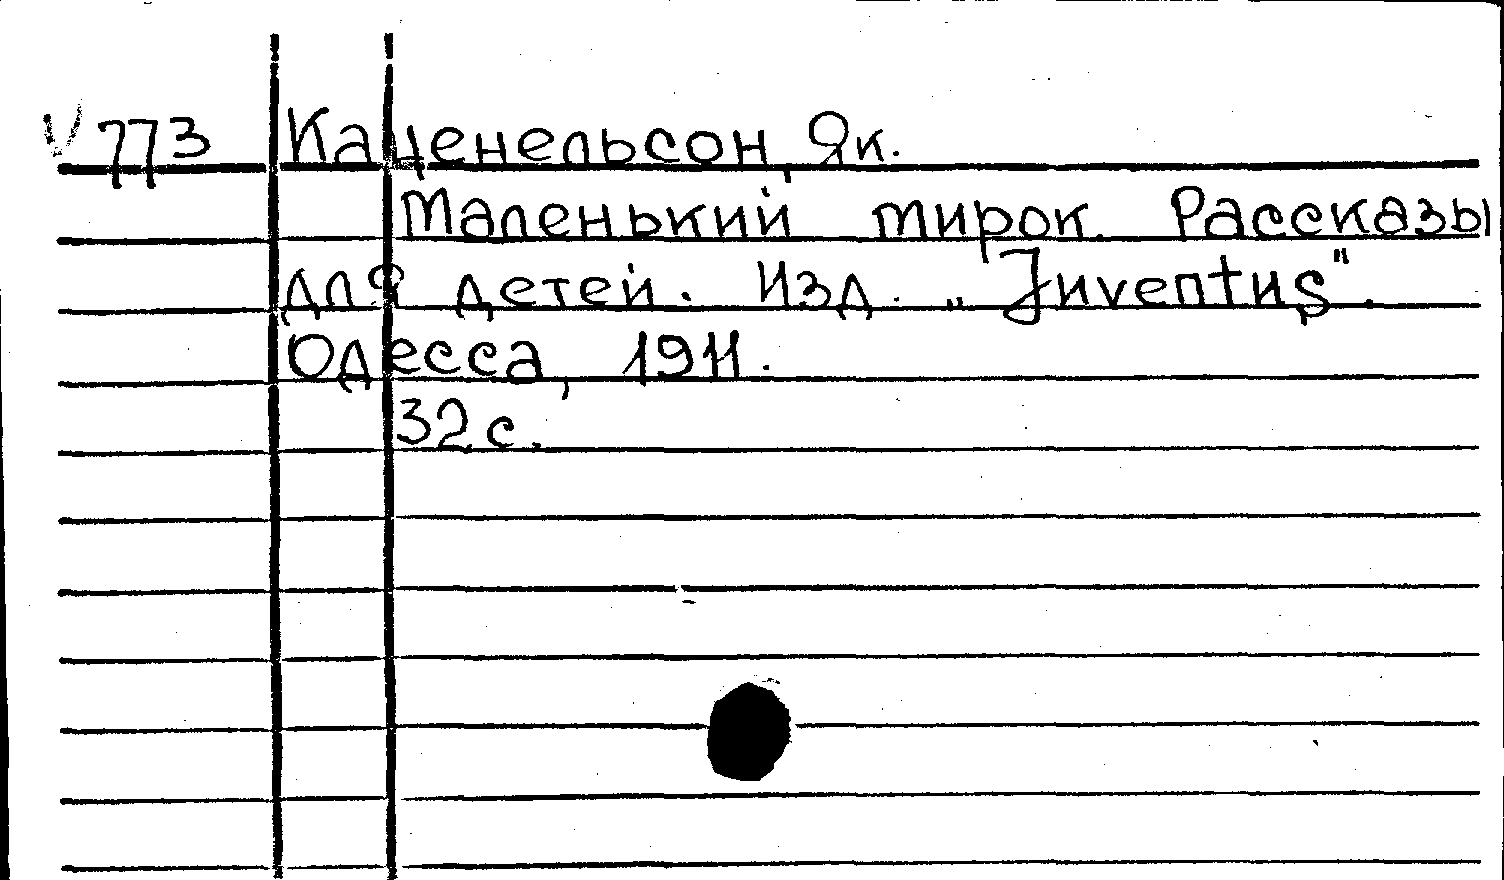 773 Каценельсон, Як.
Маленький мирок. Рассказы
для детей. Изд. „Juventus".
Одесса, 1911.
32 с.